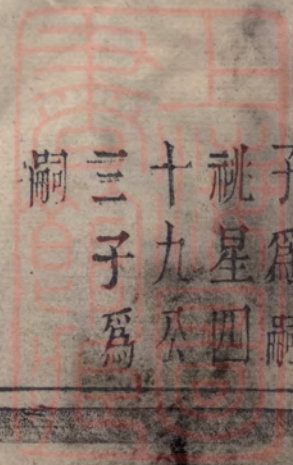 子爲嗣
祧星四
十九公
三子爲
嗣